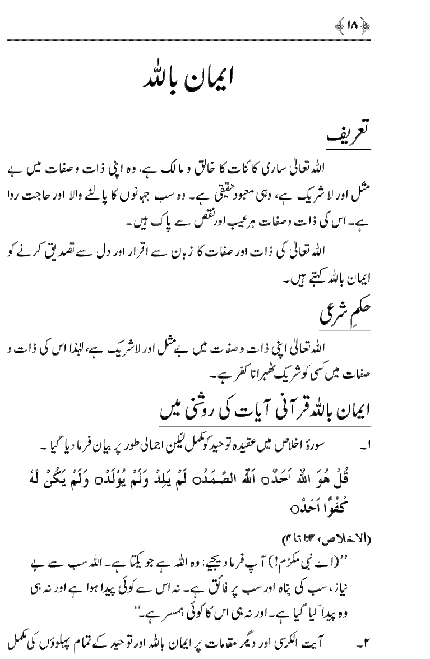 ﴿۱۸﴾
ایمان باللہ
تعریف
اللہ تعالیٰ ساری کائنات کا خالق و مالک ہے، وہ اپنی ذات و صفات میں بے
مثل اور لاشریک ہے، وہی معبود حقیقی ہے۔ وہ سب جہانوں کا پالنے والا اور حاجت روا
ہے۔ اس کی ذات و صفات ہر عیب اور نقص سے پاک ہیں۔
اللہ تعالیٰ کی ذات اور صفات کا زبان سے اقرار اور دل سے تصدیق کرنے کو
ایمان باللہ کہتے ہیں۔
حکمِ شرعی
اللہ تعالیٰ اپنی ذات و صفات میں بے مثل اور لاشریک ہے، لہٰذا اس کی ذات و
صفات میں کسی کو شریک ٹھہرانا کفر ہے۔
ایمان باللہ قرآنی آیات کی روشنی میں
۱۔ سورۂ اخلاص میں عقیدہ توحید کو مکمل لیکن اجمالی طور پر بیان فرما دیا گیا۔
قُلْ هُوَ اللّٰهُ اَحَدٌ○ اَللّٰهُ الصَّمَدُ○ لَمْ يَلِدْ وَلَمْ يُوْلَدْ○ وَلَمْ يَكُنْ لَّهٗ
كُفُوًا اَحَدٌ○
(الاخلاص، ۱۱۲:۱ تا ۴)
’’(اے نبی مکرّم!) آپ فرما دیجیے: وہ اللہ ہے جو یکتا ہے۔ اللہ سب سے بے
نیاز، سب کی پناہ اور سب پر فائق ہے۔ نہ اس سے کوئی پیدا ہوا ہے اور نہ ہی
وہ پیدا کیا گیا ہے۔ اور نہ ہی اس کا کوئی ہمسر ہے۔‘‘
۲۔ آیت الکرسی اور دیگر مقامات پر ایمان باللہ اور توحید کے تمام پہلوؤں کی مکمل